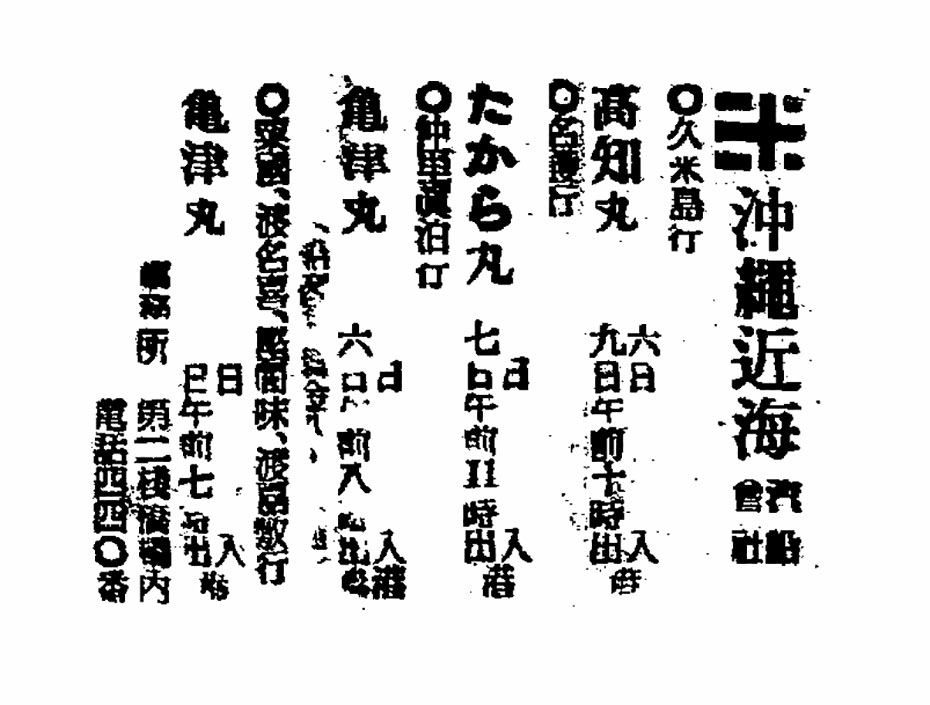 沖縄近海汽船會社
〇久米島行
高知丸
六日入港
九日午前十時出港
〇名護行
たから丸
日入港
七日午前11時出港
〇仲里真泊行
亀津丸
日入港
六日 前八 出
〇粟國、渡名喜、座間味、渡嘉敷行
亀津丸
日入港
日午前七 出
事務所 第二棧橋構内
電話四四〇番